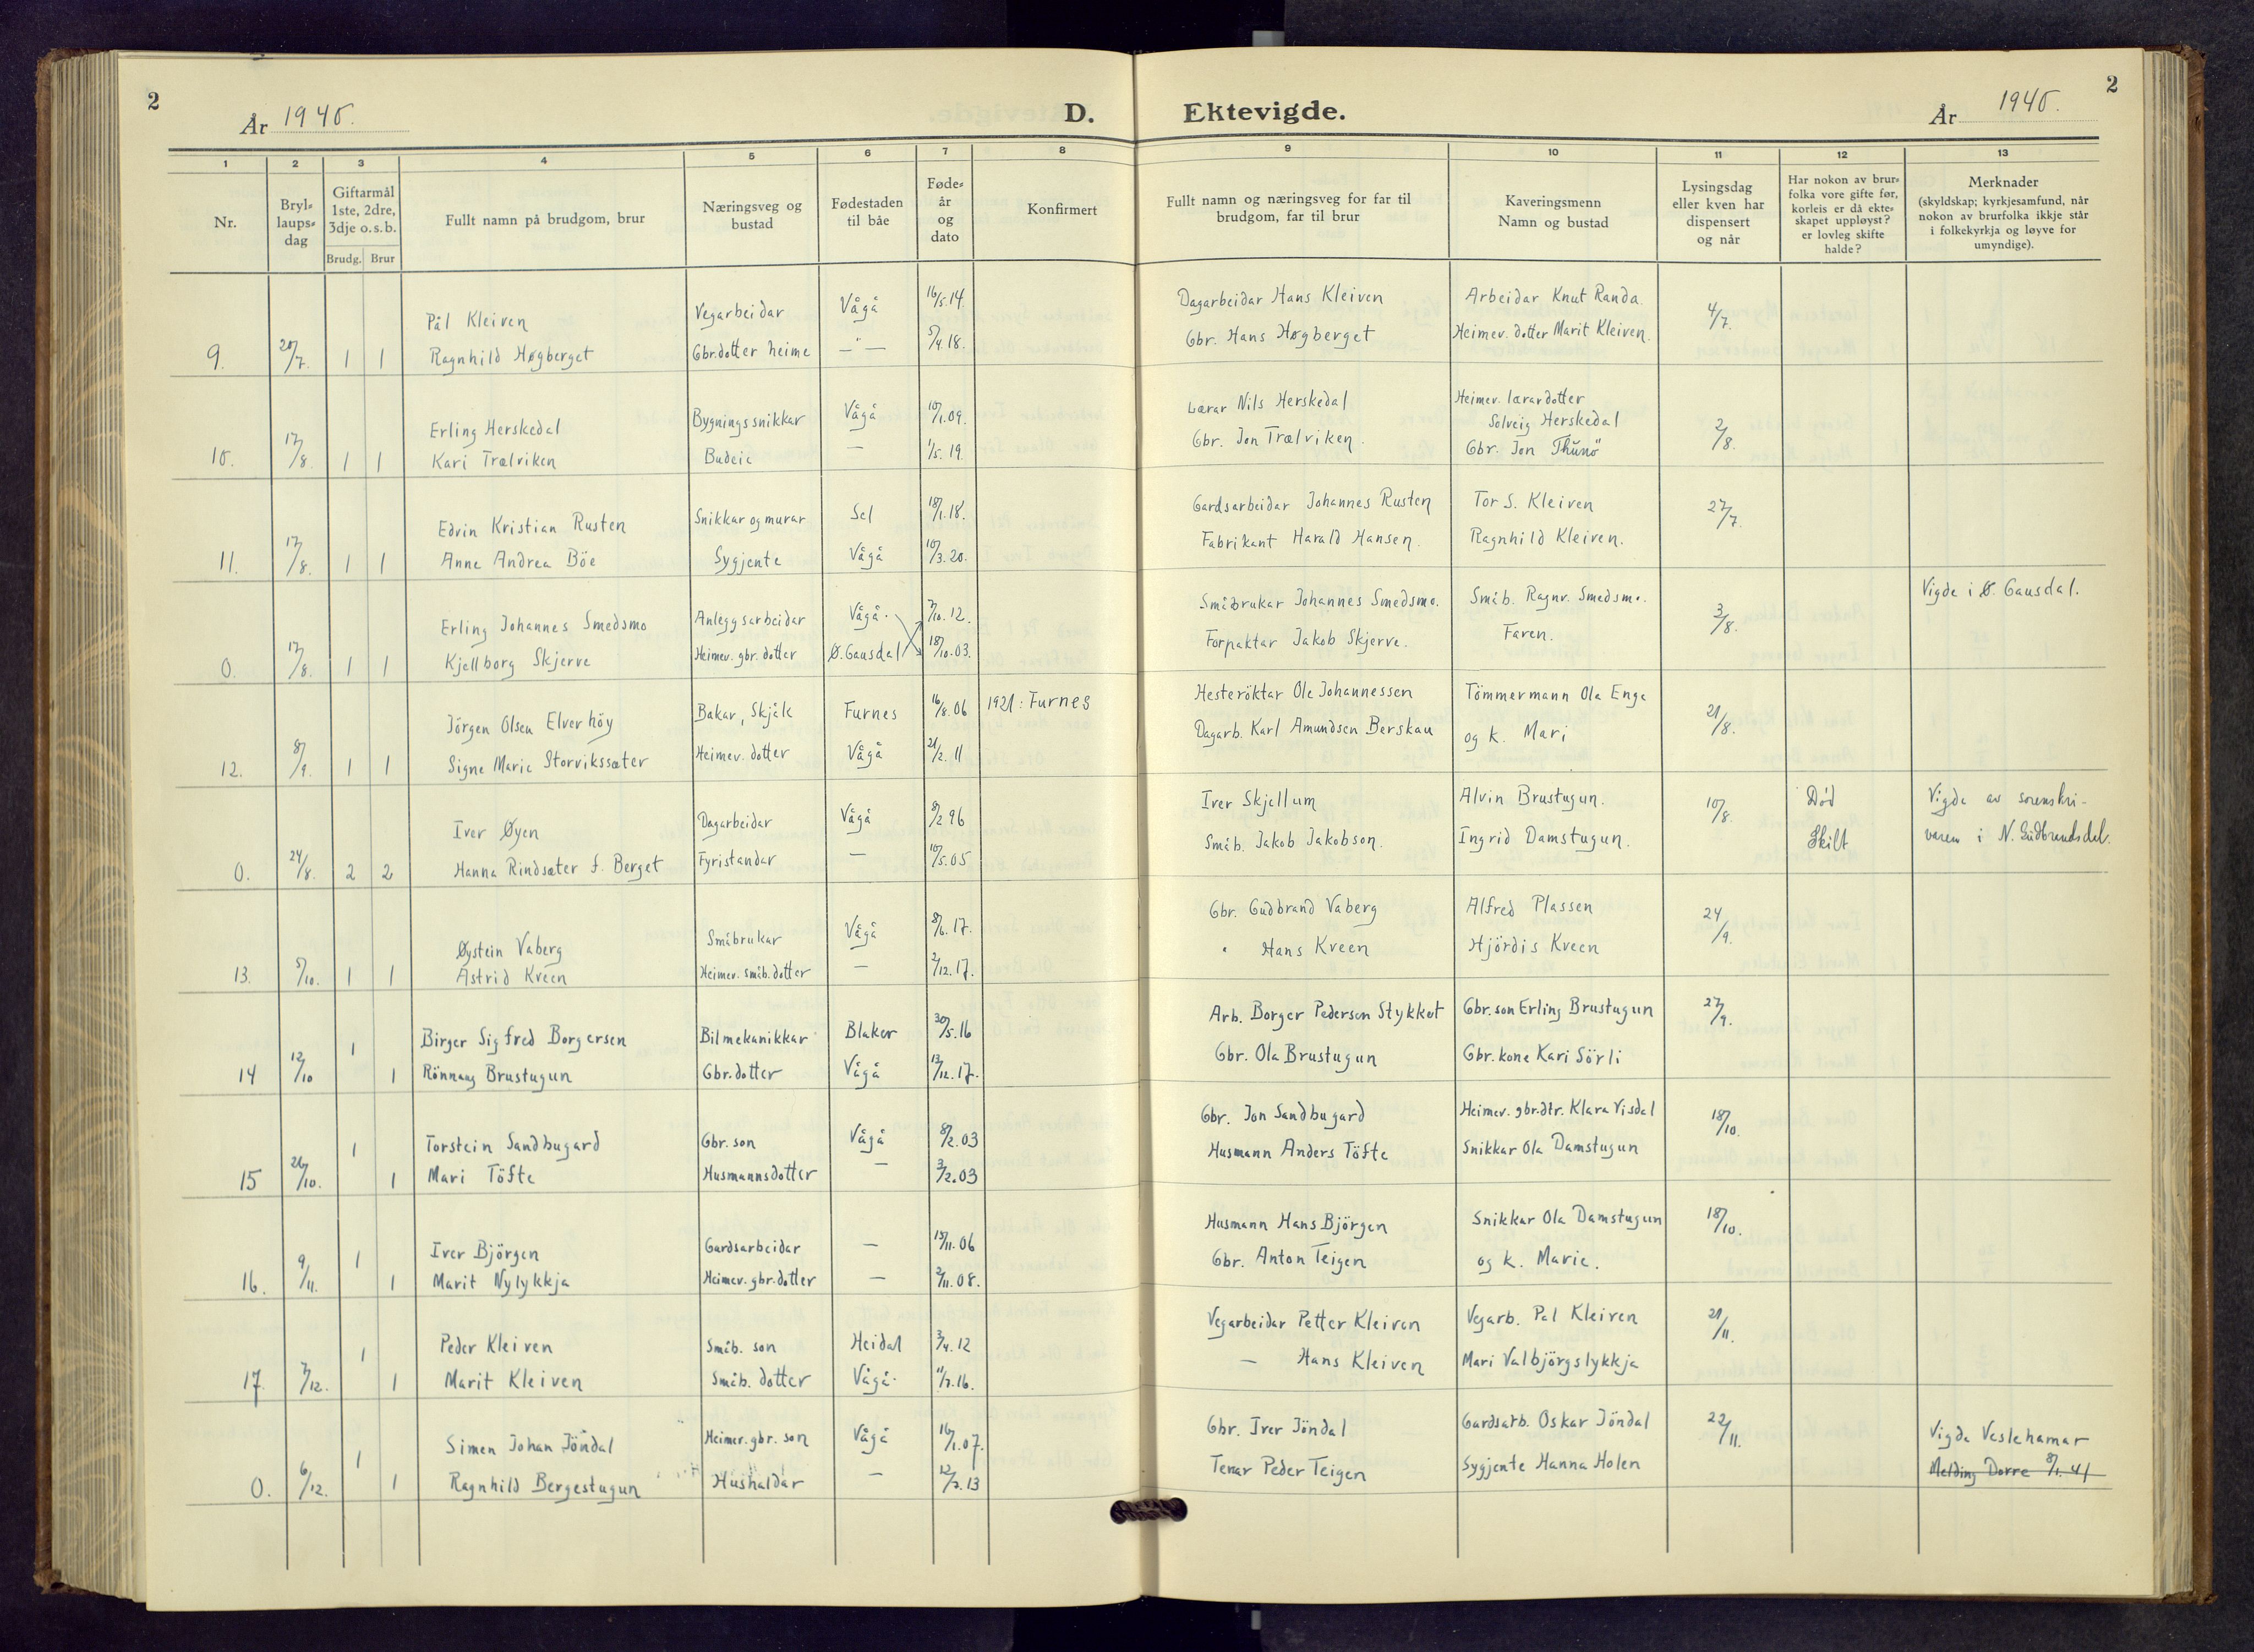 2
År 1940.
D.
Ektevigde.
År 1940.
2
1 2 3 4 5 6 7 8 9 10 11 12 13
Nr.
Bryl=
laups=
dag
Giftarmål
1ste, 2dre,
3dje o.s.b.
Brudg. Brur
Fullt namn på brudgom, brur
Næringsveg og
bustad
Fødestaden
til båe
Føde=
år
og
dato
Konfirmert
Fullt namn og næringsveg for far til
brudgom, far til brur
Kaveringsmenn
Namn og bustad
Lysingsdag
eller kven har
dispensert
og når
Har nokon av brur=
folka vore gifte før,
korleis er då ekte=
skapet uppløyst?
er lovleg skifte
halde?
Merknader
(skyldskap; kyrkjesamfund, når
nokon av brurfolka ikkje står
i folkekyrkja og løyve for
umyndige).
Pål Kleiven Vegarbeidar Vågå 16/5.14. Dagarbeidar Hans Kleiven Arbeidar Knut Randa 4/7.
9. 20/7. 1 1 Ragnhild Høgberget Gbr.dotter heime —"— 5/4.18. Gbr. Hans Høgberget Heimev. dotter Marit Kleiven.
Erling Herskedal Bygningssnikkar Vågå 10/1.09. Lærar Nils Herskedal Heimev. lærardotter
Solveig Herskedal 2/8.
10. 17/8. 1 1 Kari Trælviken Budeie — 1/5.19. Gbr. Jon Trælviken. Gbr. Jon Thunö
Edvin Kristian Rusten Snikkar og murar Sel 18/1.18. Gardsarbeidar Johannes Rusten Tor S. Kleiven 27/7.
11. 17/8. 1 1 Anne Andrea Böe Sygjente Vågå 10/3.20. Fabrikant Harald Hansen. Ragnhild Kleiven.
Erling Johannes Smedsmo Anleggsarbeidar Vågå. 7/10.12. Småbrukar Johannes Smedsmo. Småb. Ragnv. Smedsmo. 3/8. Vigde i Ø. Gausdal.
0. 17/8. 1 1 Kjellborg Skjerve Heimev. gbr. dotter Ø. Gausdal 18/10.03. Forpaktar Jakob Skjerve. Faren.
Jörgen Olsen Elverhöy Bakar, Skjåk Furnes 16/8.06 1921: Furnes Hesteröktar Ole Johannessen Tömmermann Ola Enga 21/8.
12. 8/9. 1 1 Signe Marie Storvikssæter Heimev. dotter Vågå 21/2.11 Dagarb. Karl Amundsen Berskau og k. Mari
Iver Øyen Dagarbeidar Vågå 8/2 96 Iver Skjellum Alvin Brustugun. 10/8. Död Vigde av sorenskri-
0. 24/8. 2 2 Hanna Rindsæter f. Berget Fyristandar — 10/5.05 Småb. Jakob Jakobson. Ingrid Damstugun. Skilt varen i N. Gudbrandsdal.
Øystein Vaberg Småbrukar Vågå 8/6.17. Gbr. Gudbrand Vaberg Alfred Plassen 24/9.
13. 5/10. 1 1 Astrid Kveen Heimev. småb. dotter — 2/12.17. " Hans Kveen Hjördis Kveen
Birger Sigfred Borgersen Bilmekanikkar Blaker 30/5.16 Arb. Borger Pedersen Stykket Gbr. son Erling Brustugun 27/9.
14 12/10 1 1 Rönnaug Brustugun Gbr.dotter Vågå 13/12.17. Gbr. Ola Brustugun Gbr. kone Kari Sörli
Torstein Sandbugard Gbr. son Vågå 8/2.03 Gbr. Jon Sandbugard Heimev. gbr.dtr. Klara Visdal 18/10.
15 26/10. 1 1 Mari Töfte Husmannsdotter — 3/2.03 Husmann Anders Töfte Snikkar Ola Damstugun
Iver Björgen Gardsarbeidar — 15/11.06 Husmann Hans Björgen Snikkar Ola Damstugun 18/10.
16. 9/11. 1 1 Marit Nylykkja Heimev. gbr.dotter — 2/11.08. Gbr. Anton Teigen og k. Marie.
Peder Kleiven Småb. son Heidal 3/4.12 Vegarbeidar Petter Kleiven Vegarb. Pål Kleiven 21/11.
17. 7/12. 1 1 Marit Kleiven Småb. dotter Vågå. 11/7.16. — Hans Kleiven Mari Valbjörgslykkja
Simen Johan Jöndal Heimev. gbr. son Vågå 16/1.07. Gbr. Iver Jöndal Gardsarb. Oskar Jöndal 22/11. Vigde Veslehamar
0. 6/12. 1 1 Ragnhild Bergestugun Hushaldar — 12/7.13 Tenar Peder Teigen Sygjente Hanna Holen Melding Dovre 8/1.41